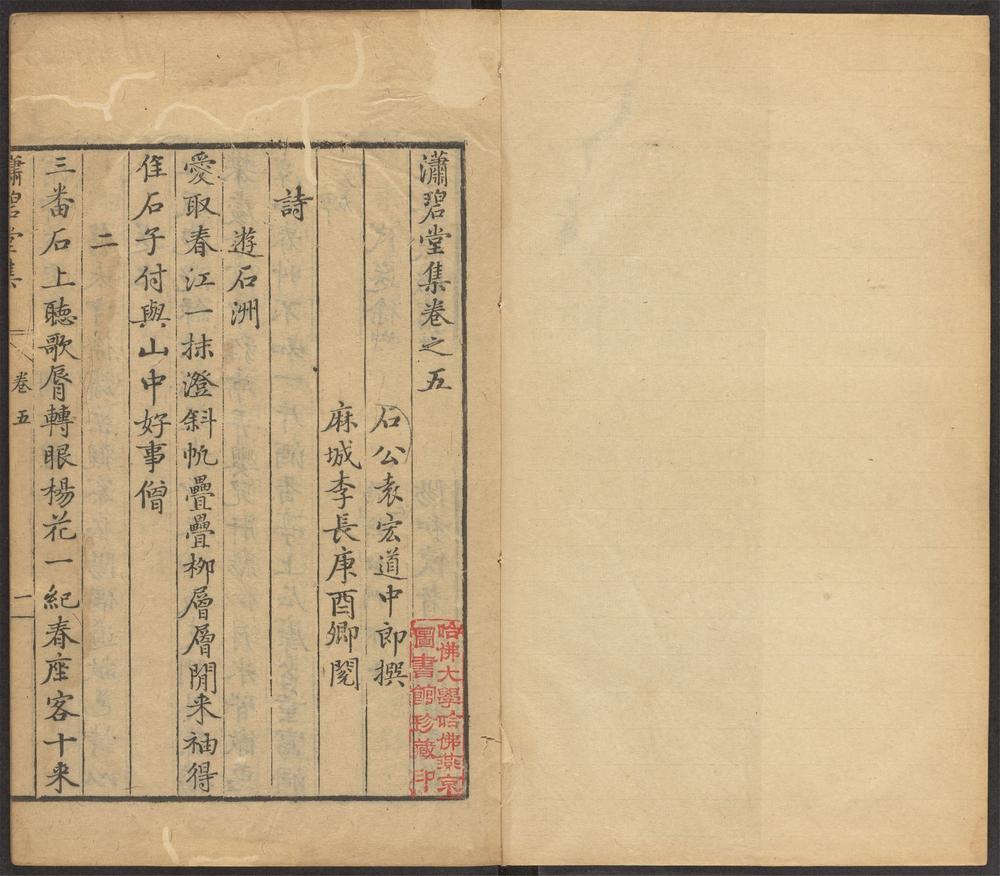 瀟碧堂集卷之五
石公袁宏道中郎撰
麻城李長庚酉卿閱
詩
遊石洲
愛取春江一抹澄斜帆疊疊柳層層閒来袖得
隹石子付與山中好事僧
二
三番石上聽歌脣轉眼楊花一紀春座客十来
瀟碧堂集
卷五
一
哈佛大學哈佛燕京
圖書館珍藏印